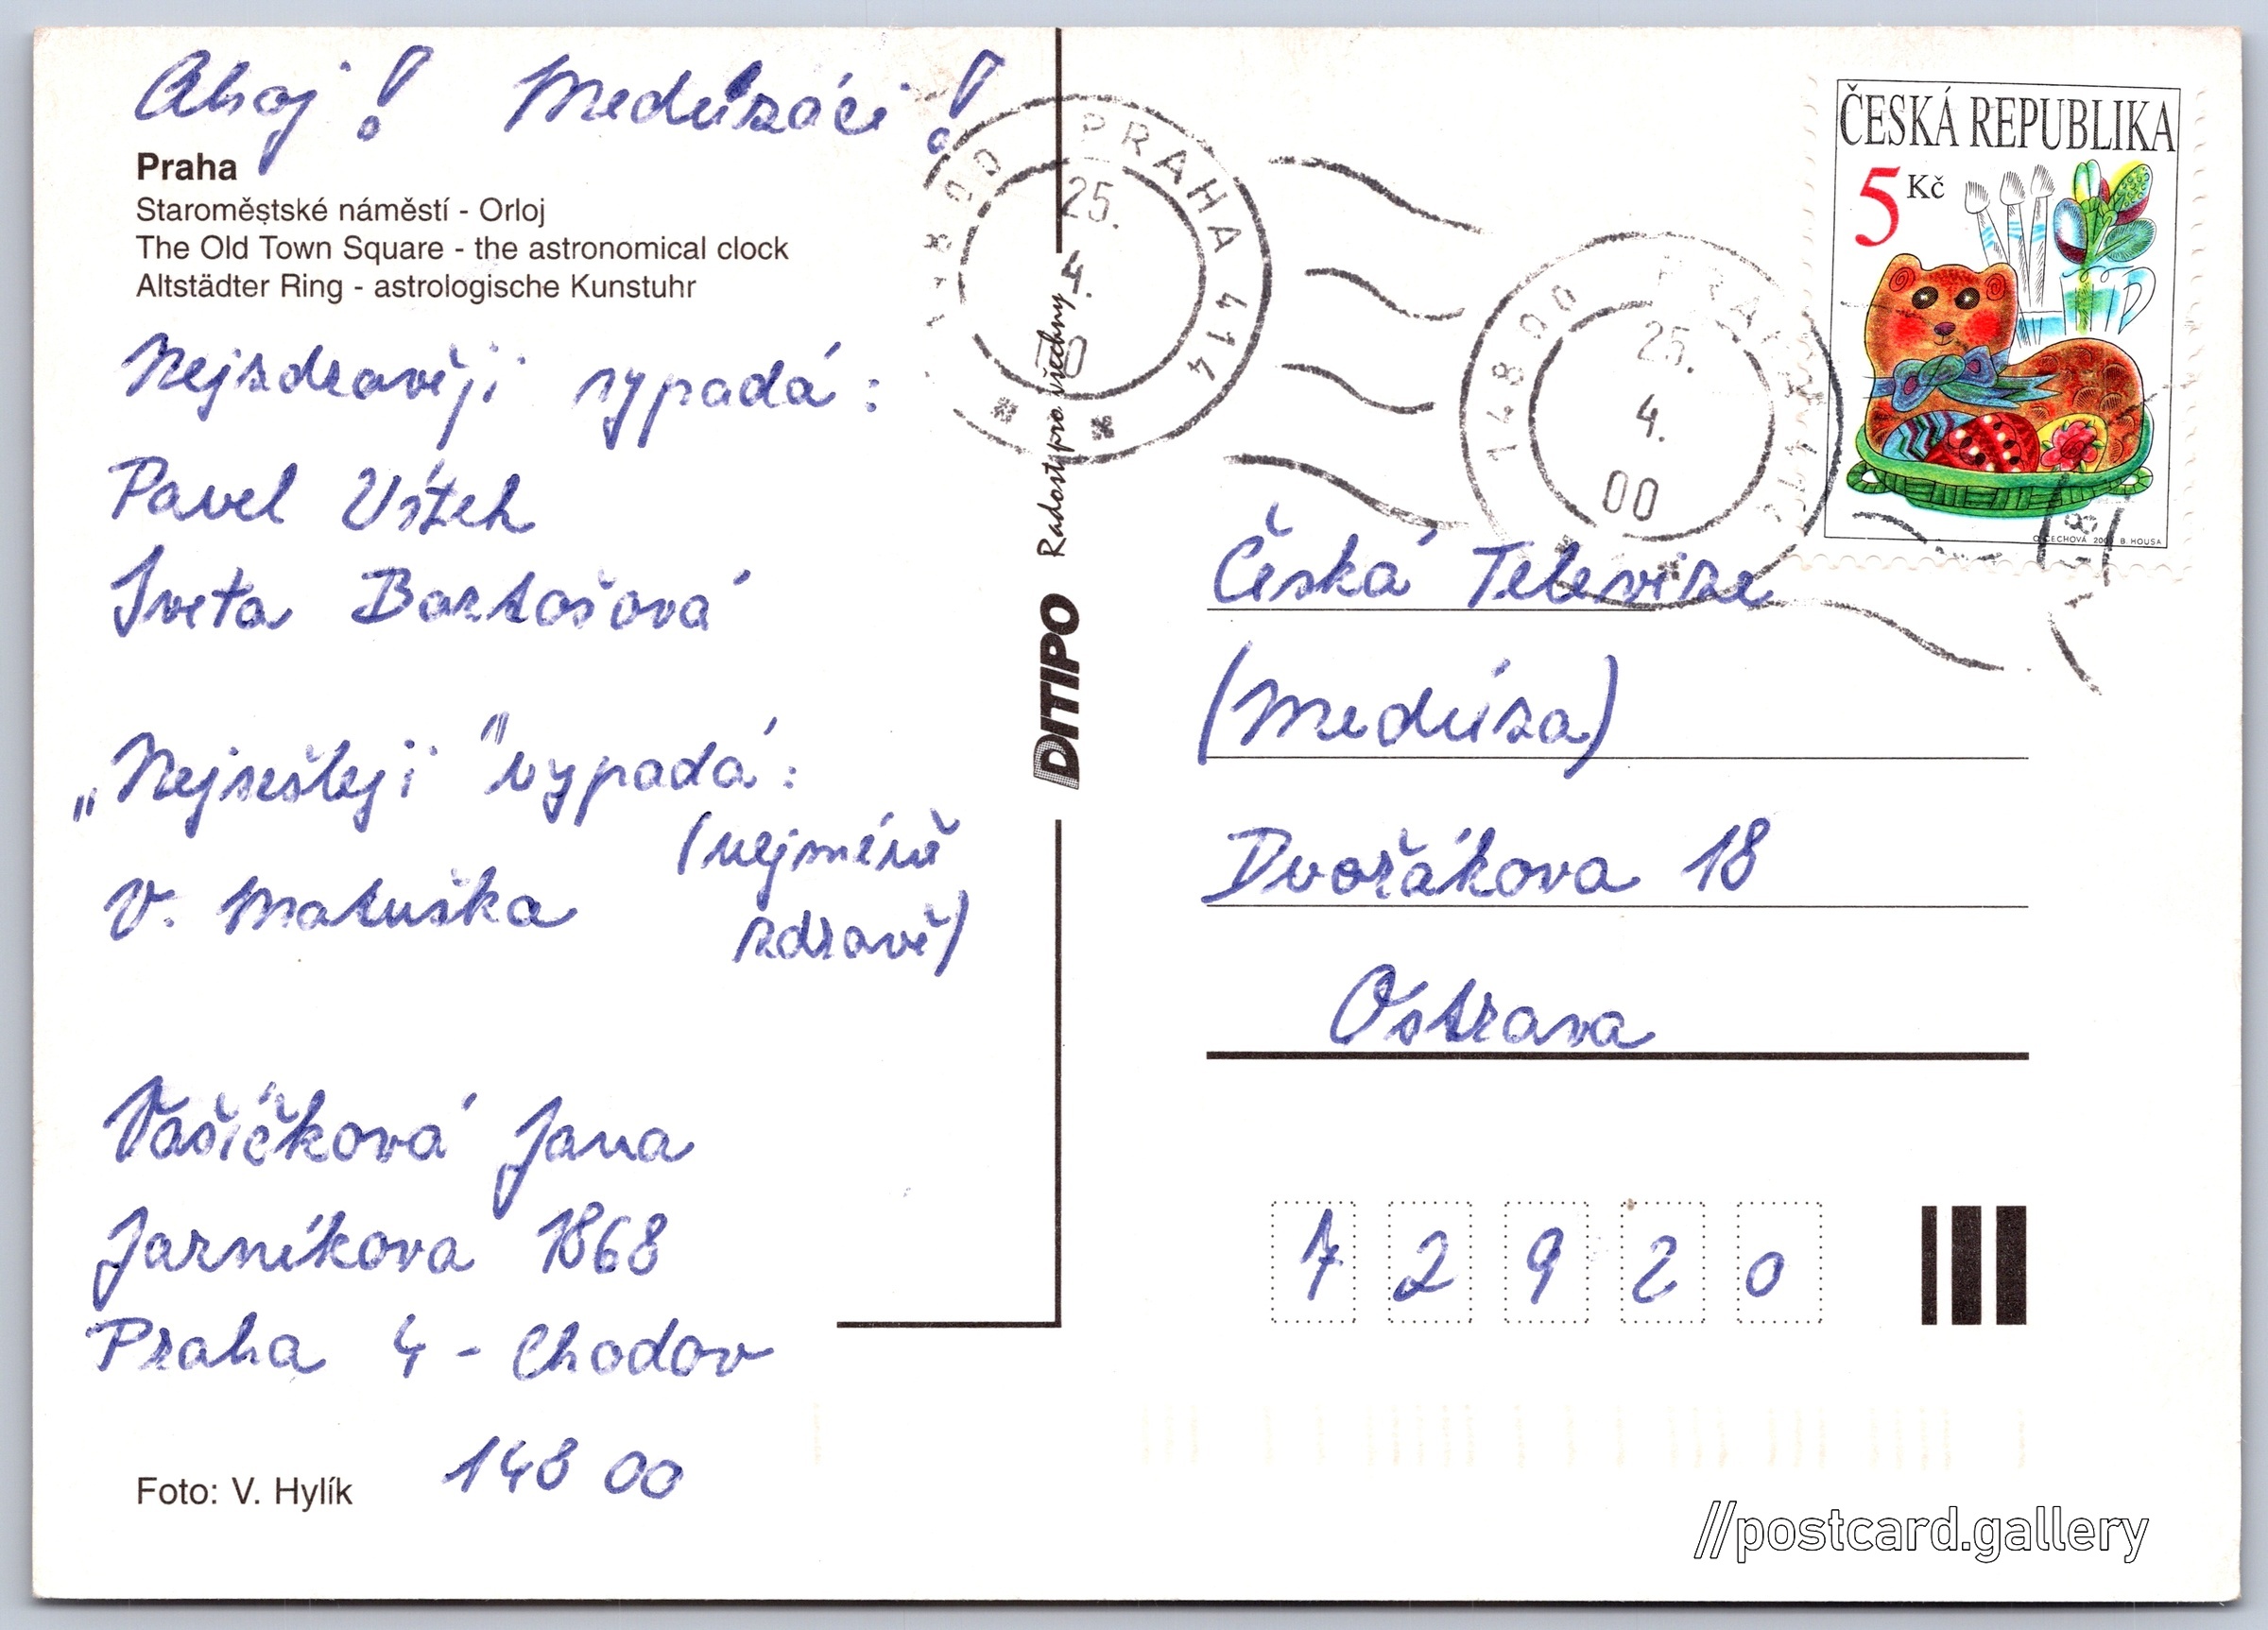 Ahoj! Medúzáci!
Praha
Staroměstské náměstí - Orloj
The Old Town Square - the astronomical clock
Altstädter Ring - astrologische Kunstuhr
Nejzdravěji vypadá:
Pavel Vítek
Iveta Bartošová
„Nejsešleji" vypadá:
(nejméně
V. Matuška
zdravě)
Vašíčková Jana
Jarníkova 1868
Praha 4 - Chodov
148 00
Foto: V. Hylík
Radost pro všechny
DITIPO
148 00 PRAHA 414
25.
4.
00
148 00 PRAHA 414
25.
4.
00
ČESKÁ REPUBLIKA
5 Kč
O. ČECHOVÁ B. HOUSA
Česká Televize
(Medúza)
Dvořákova 18
Ostrava
72920
//postcard.gallery